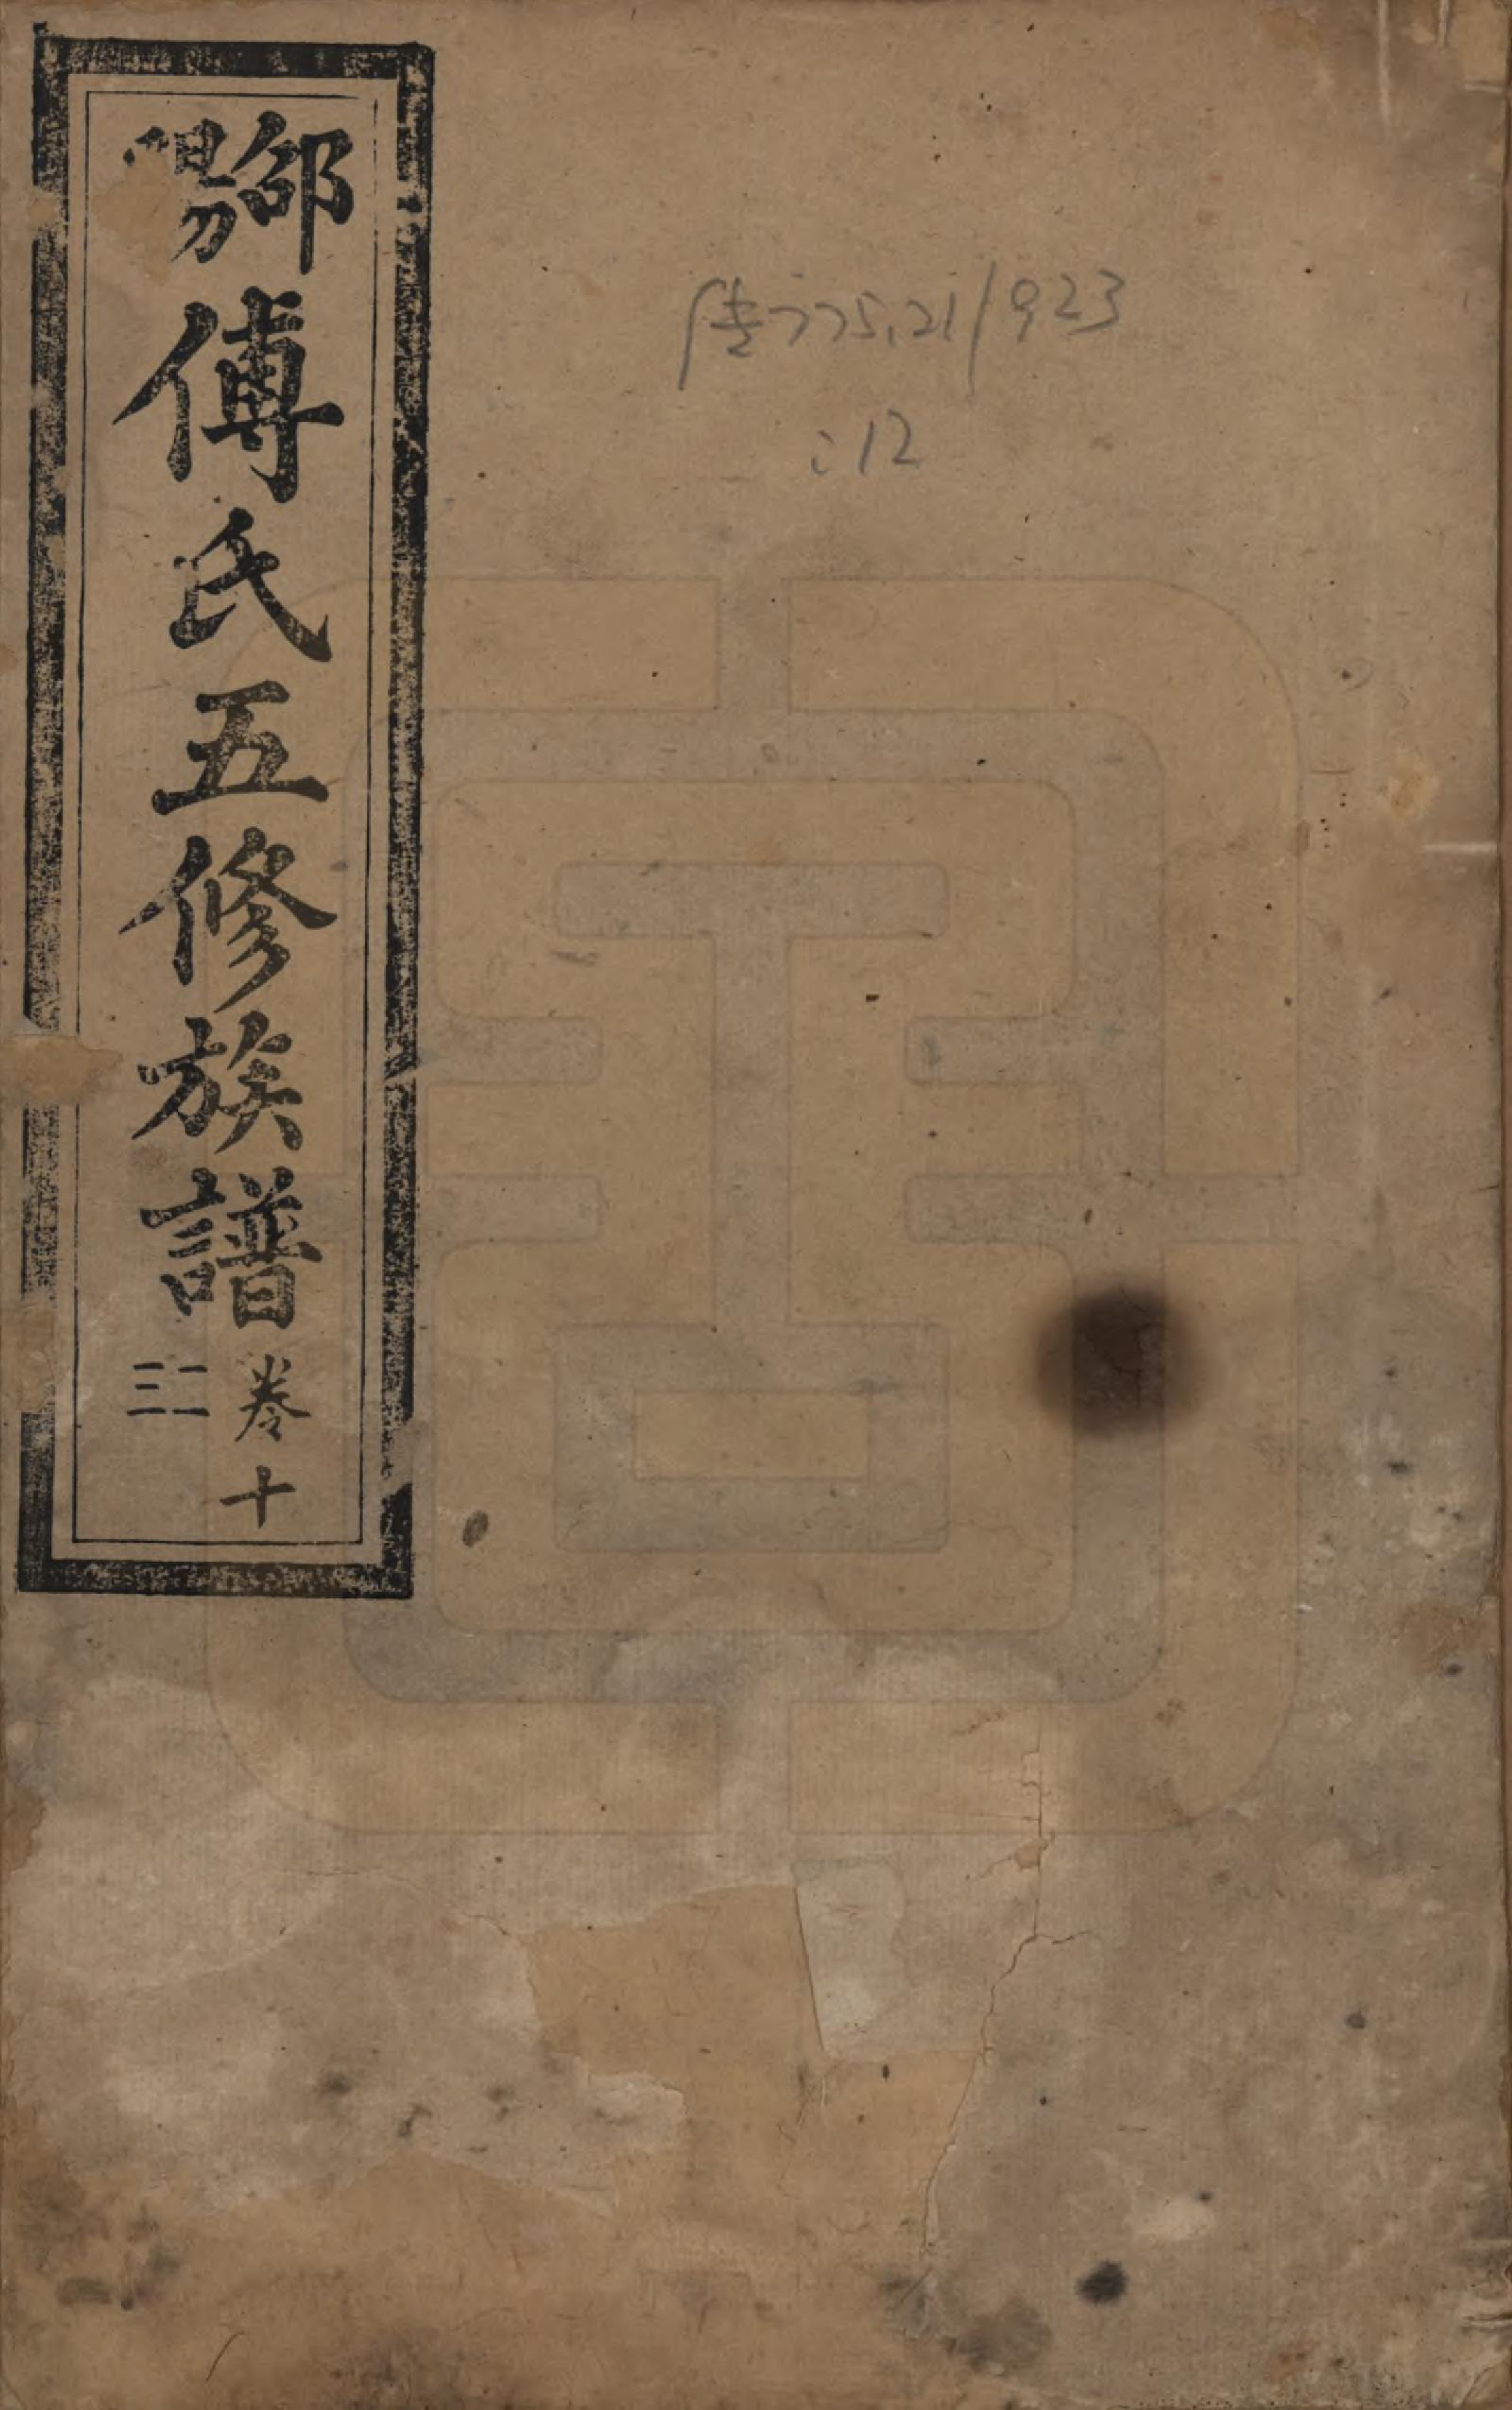 邵陽傅氏五修族譜卷十
二三
775.21/923
:12